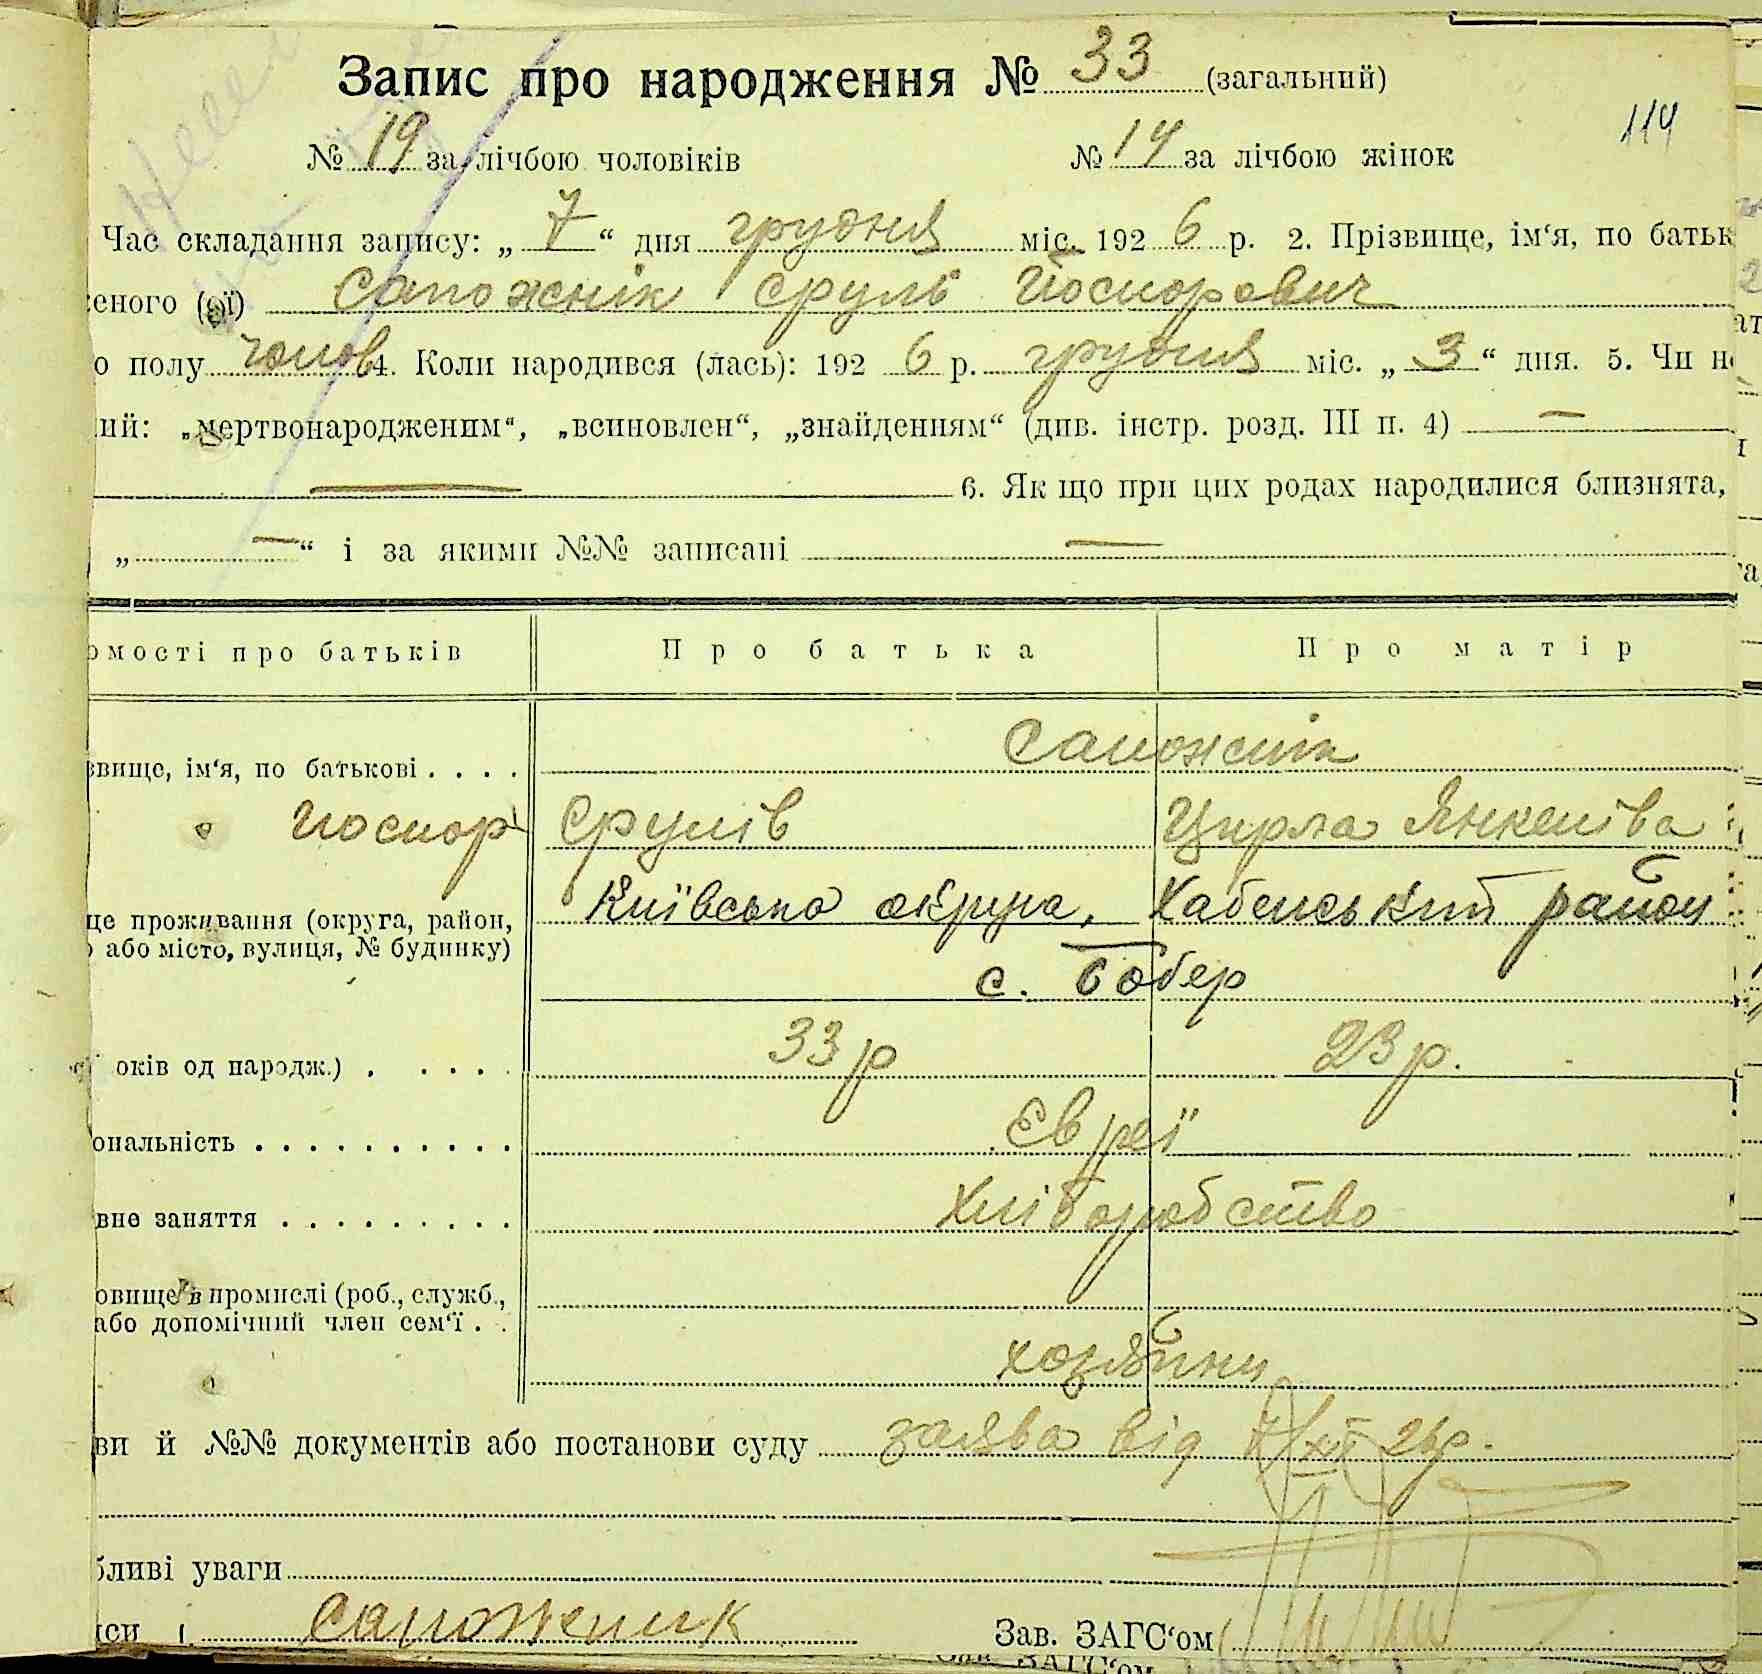 Запис про народження № 33 (загальний)
114
№ 19 за лічбою чоловіків № 14 за лічбою жінок
Час складання запису: „ 7 “ дня грудня міс. 192 6 р. 2. Прізвище, ім‘я, по батьк
еного (ої) Сапожнік Сруль Йосиорович
о полу чолов 4. Коли народився (лась): 192 6 р. грудня міс. „ 3 “ дня. 5. Чи н
ий: „мертвонародженим“, „всиновлен“, „знайденням“ (див. інстр. розд. III п. 4) —
— 6. Як що при цих родах народилися близнята,
„ — “ і за якими №№ записані —
омості про батьків Про батька Про матір
Сапожнік
звище, ім‘я, по батькові . . . .
Йосиор Срулів Цирла Янкеліва
Київська округа, Хабенський район
це проживання (округа, район,
або місто, вулиця, № будинку)
с. Бобер
33 р 23 р.
оків од народж.) . . . . .
Євреї
ональність . . . . . . . . . .
Хліборобство
вне заняття . . . . . . . . .
овище в промислі (роб., служб.,
або допомічний член сем‘ї . .
хозяйни
ви й №№ документів або постанови суду заява від 7/XII 26р.
бливі уваги
си 1. Сапожник Зав. ЗАГС‘ом